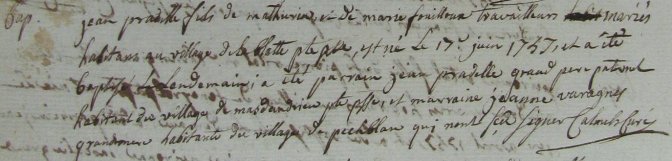 Bap. jean pradelle fils de mathurin, et de marie fouilloux travailleurs mariés
habitans au village de la pte psse, est né le 17e juin 1757, et a été
baptisé le lendemain; a été parrain jean pradelle grand pere paternel
habitant du village de masdandrieu pte psse, et marraine jeanne varagnes
grandmere habitante du village de pechblan qui n'ont sçu signer Calmels Curé